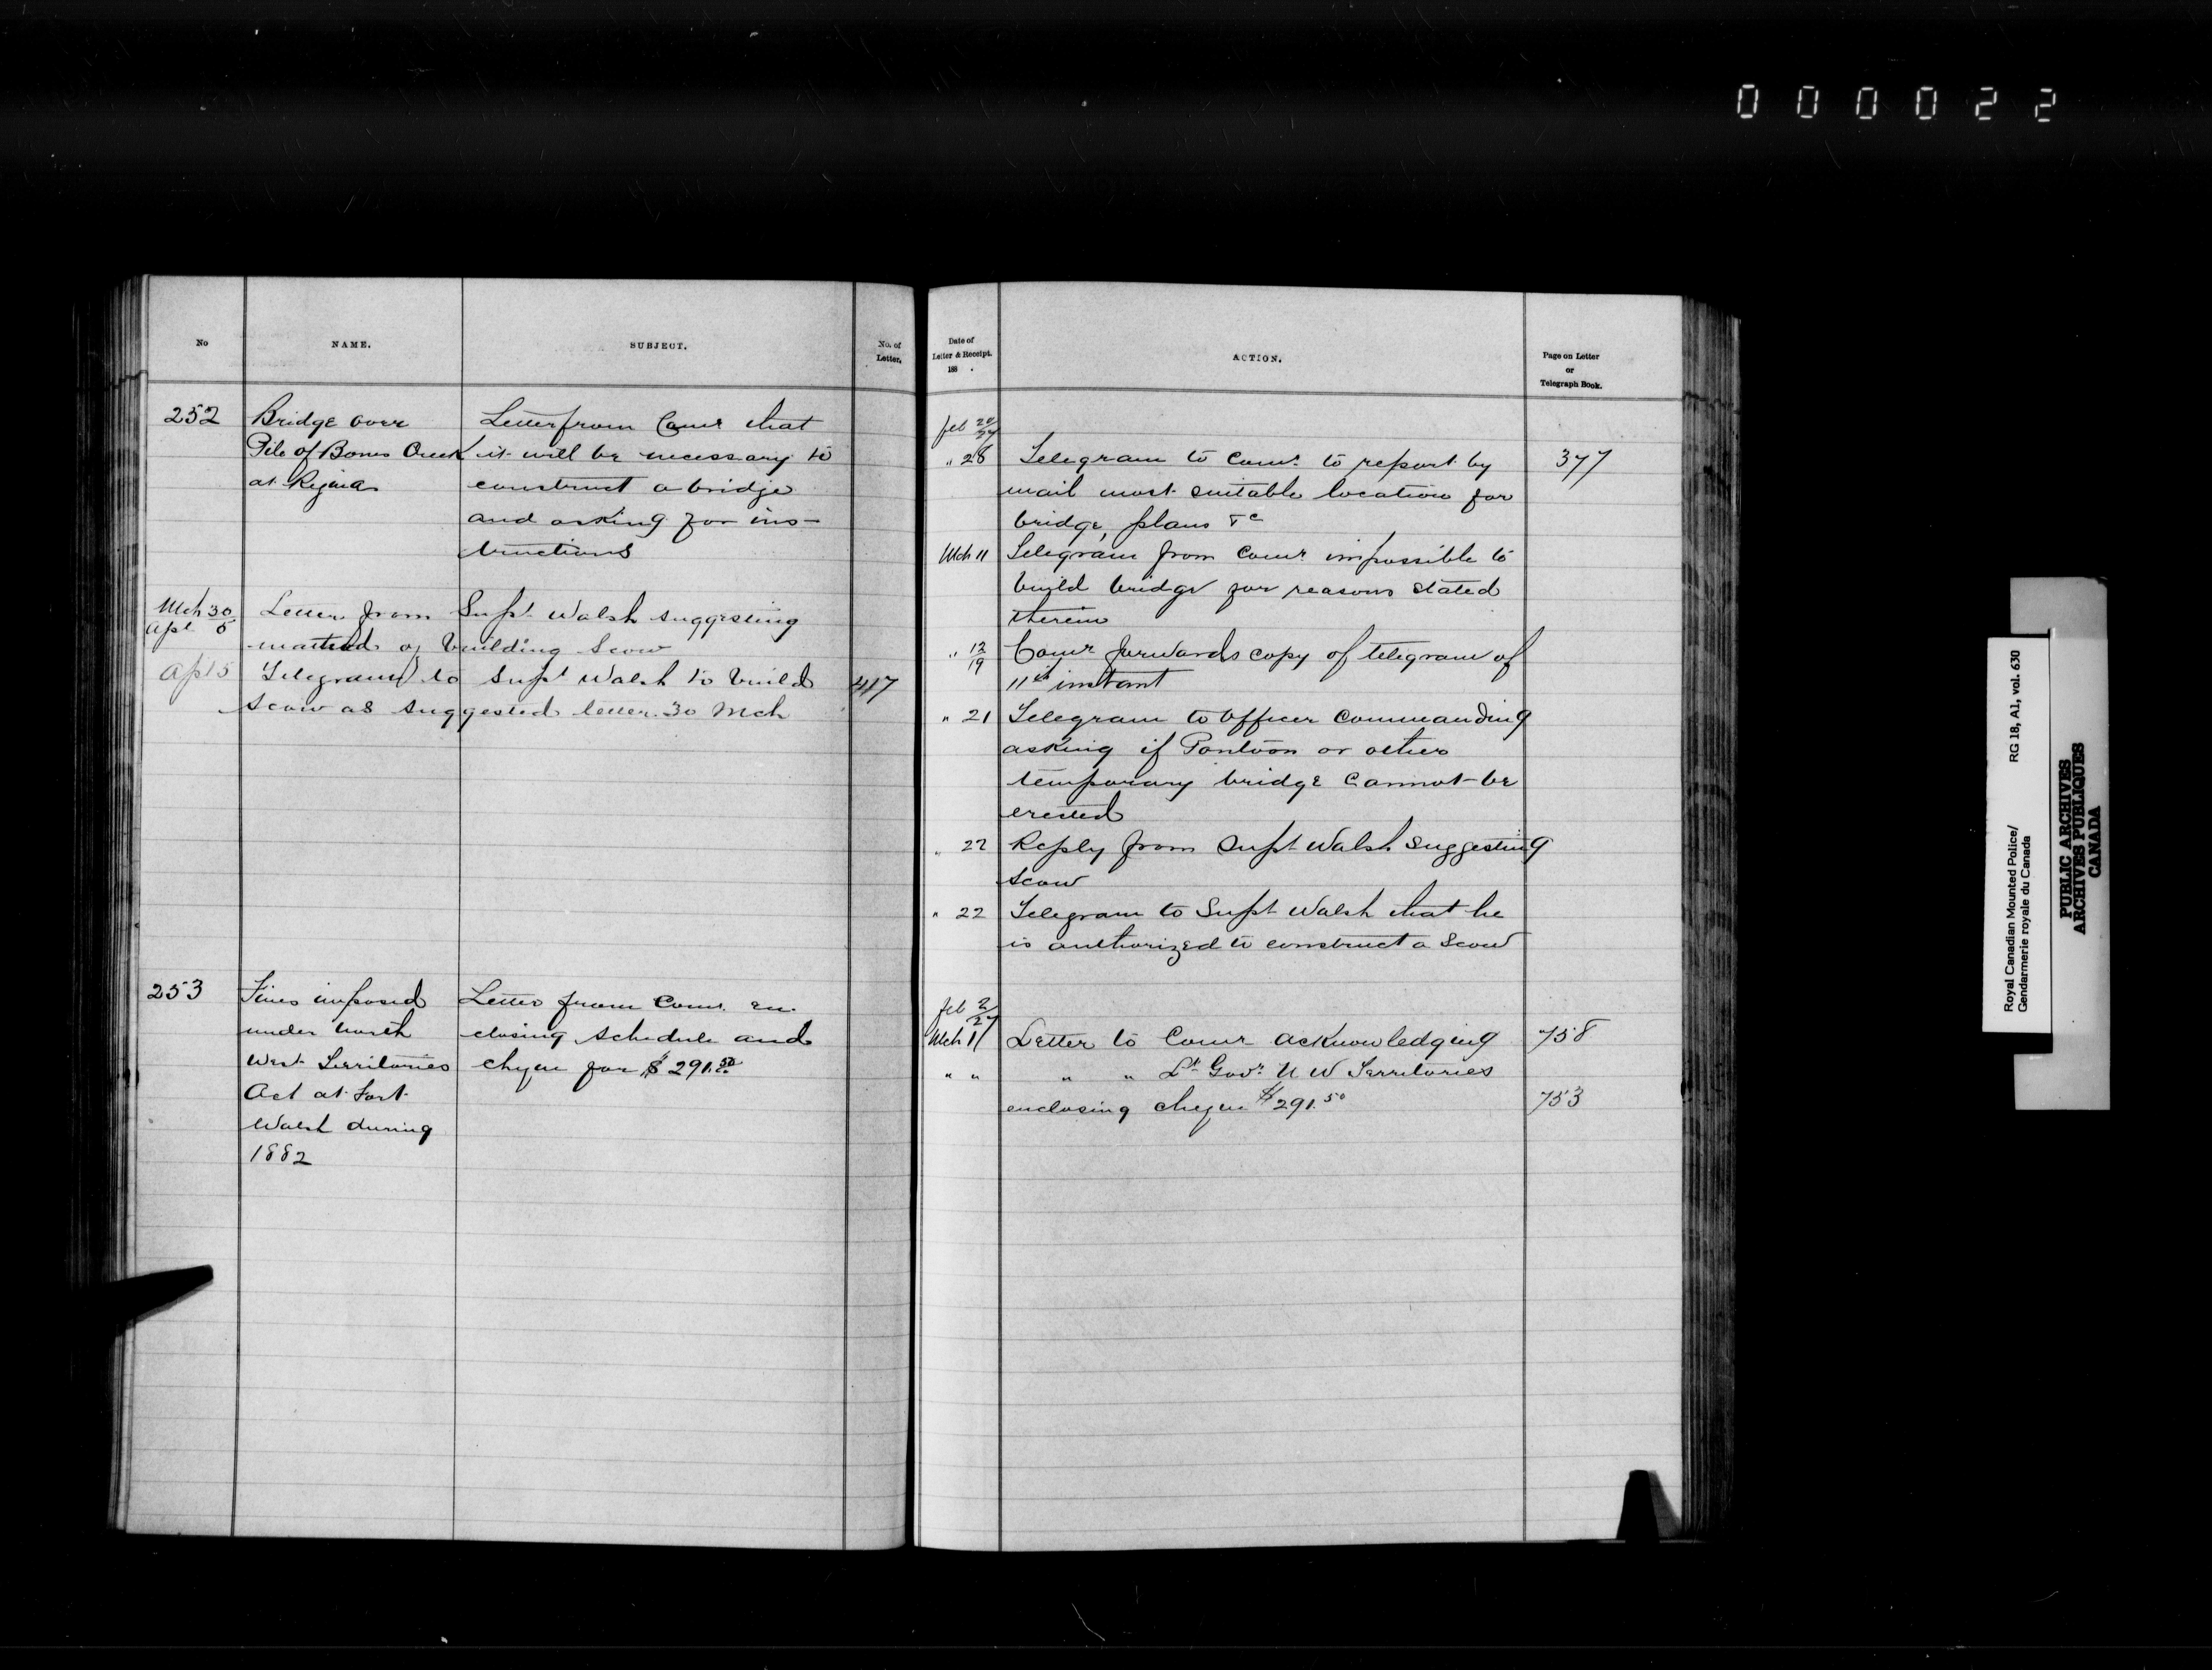 000022
No
NAME.
SUBJECT.
No. of
Letter.
252
Bridge over
Pile of Bones Creek
at Regina
Letter from Comr that
it will be necessary to
construct a bridge
and asking for ins-
tructions
Mch 30
Apl 5
Letter from Supt Walsh suggesting
method of building Scow
Apl 5
Telegram to Supt Walsh to build
Scow as suggested letter 30 Mch
417
253
Fines imposed
under North
West Territories
Act at Fort
Walsh during
1882
Letter from Comr. en-
closing schedule and
cheque for $291.50
Date of
Letter & Receipt.
188 .
ACTION.
Page on Letter
or
Telegraph Book.
Feb 20/27
" 28 Telegram to Comr. to report by 377
mail most suitable location for
bridge, plans &c
Mch 11 Telegram from Comr impossible to
build bridge for reasons stated
therein
" 12/19 Comr forwards copy of telegram of
11th instant
" 21 Telegram to Officer Commanding
asking if Pontoon or other
temporary bridge cannot be
erected
" 22 Reply from Supt Walsh suggesting
scow
" 22 Telegram to Supt Walsh that he
is authorized to construct a scow
Feb 2/27
Mch 11 Letter to Comr acknowledging 758
" " " " Lt Govr. N W Territories
enclosing cheque $291.50 753
Royal Canadian Mounted Police/ RG 18, A1, vol. 630
Gendarmerie royale du Canada
PUBLIC ARCHIVES
ARCHIVES PUBLIQUES
CANADA